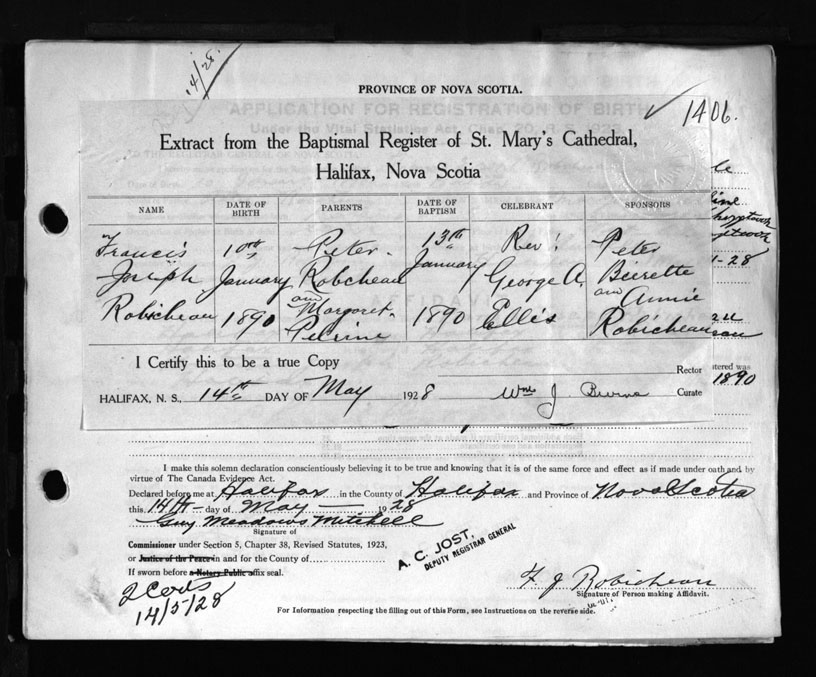 14/28.
PROVINCE OF NOVA SCOTIA.
APPLICATION FOR REGISTRATION OF BIRTH
1406.
Extract from the Baptismal Register of St. Mary's Cathedral,
Halifax, Nova Scotia
NAME DATE OF BIRTH PARENTS DATE OF BAPTISM CELEBRANT SPONSORS
Francis 10th Peter 13th Rev. Peter
Joseph January Robicheau January George A. and
Robicheau 1890 and Margaret 1890 Ellis Annie Robicheau
I Certify this to be a true Copy
Rector
HALIFAX, N. S., 14th DAY OF May 1928 Wm J Curate
tered was
1890
I make this solemn declaration conscientiously believing it to be true and knowing that it is of the same force and effect as if made under oath and by
virtue of The Canada Evidence Act.
Declared before me at Halifax in the County of Halifax and Province of Nova Scotia
this 14th day of May 1928
Guy Meadows Mitchell
Signature of
Commissioner under Section 5, Chapter 38, Revised Statutes, 1923,
or Justice of the Peace in and for the County of
If sworn before a Notary Public affix seal.
A. C. JOST,
DEPUTY REGISTRAR GENERAL
2 Certs
14/5/28
F. J. Robicheau
Signature of Person making Affidavit.
For Information respecting the filling out of this Form, see Instructions on the reverse side.